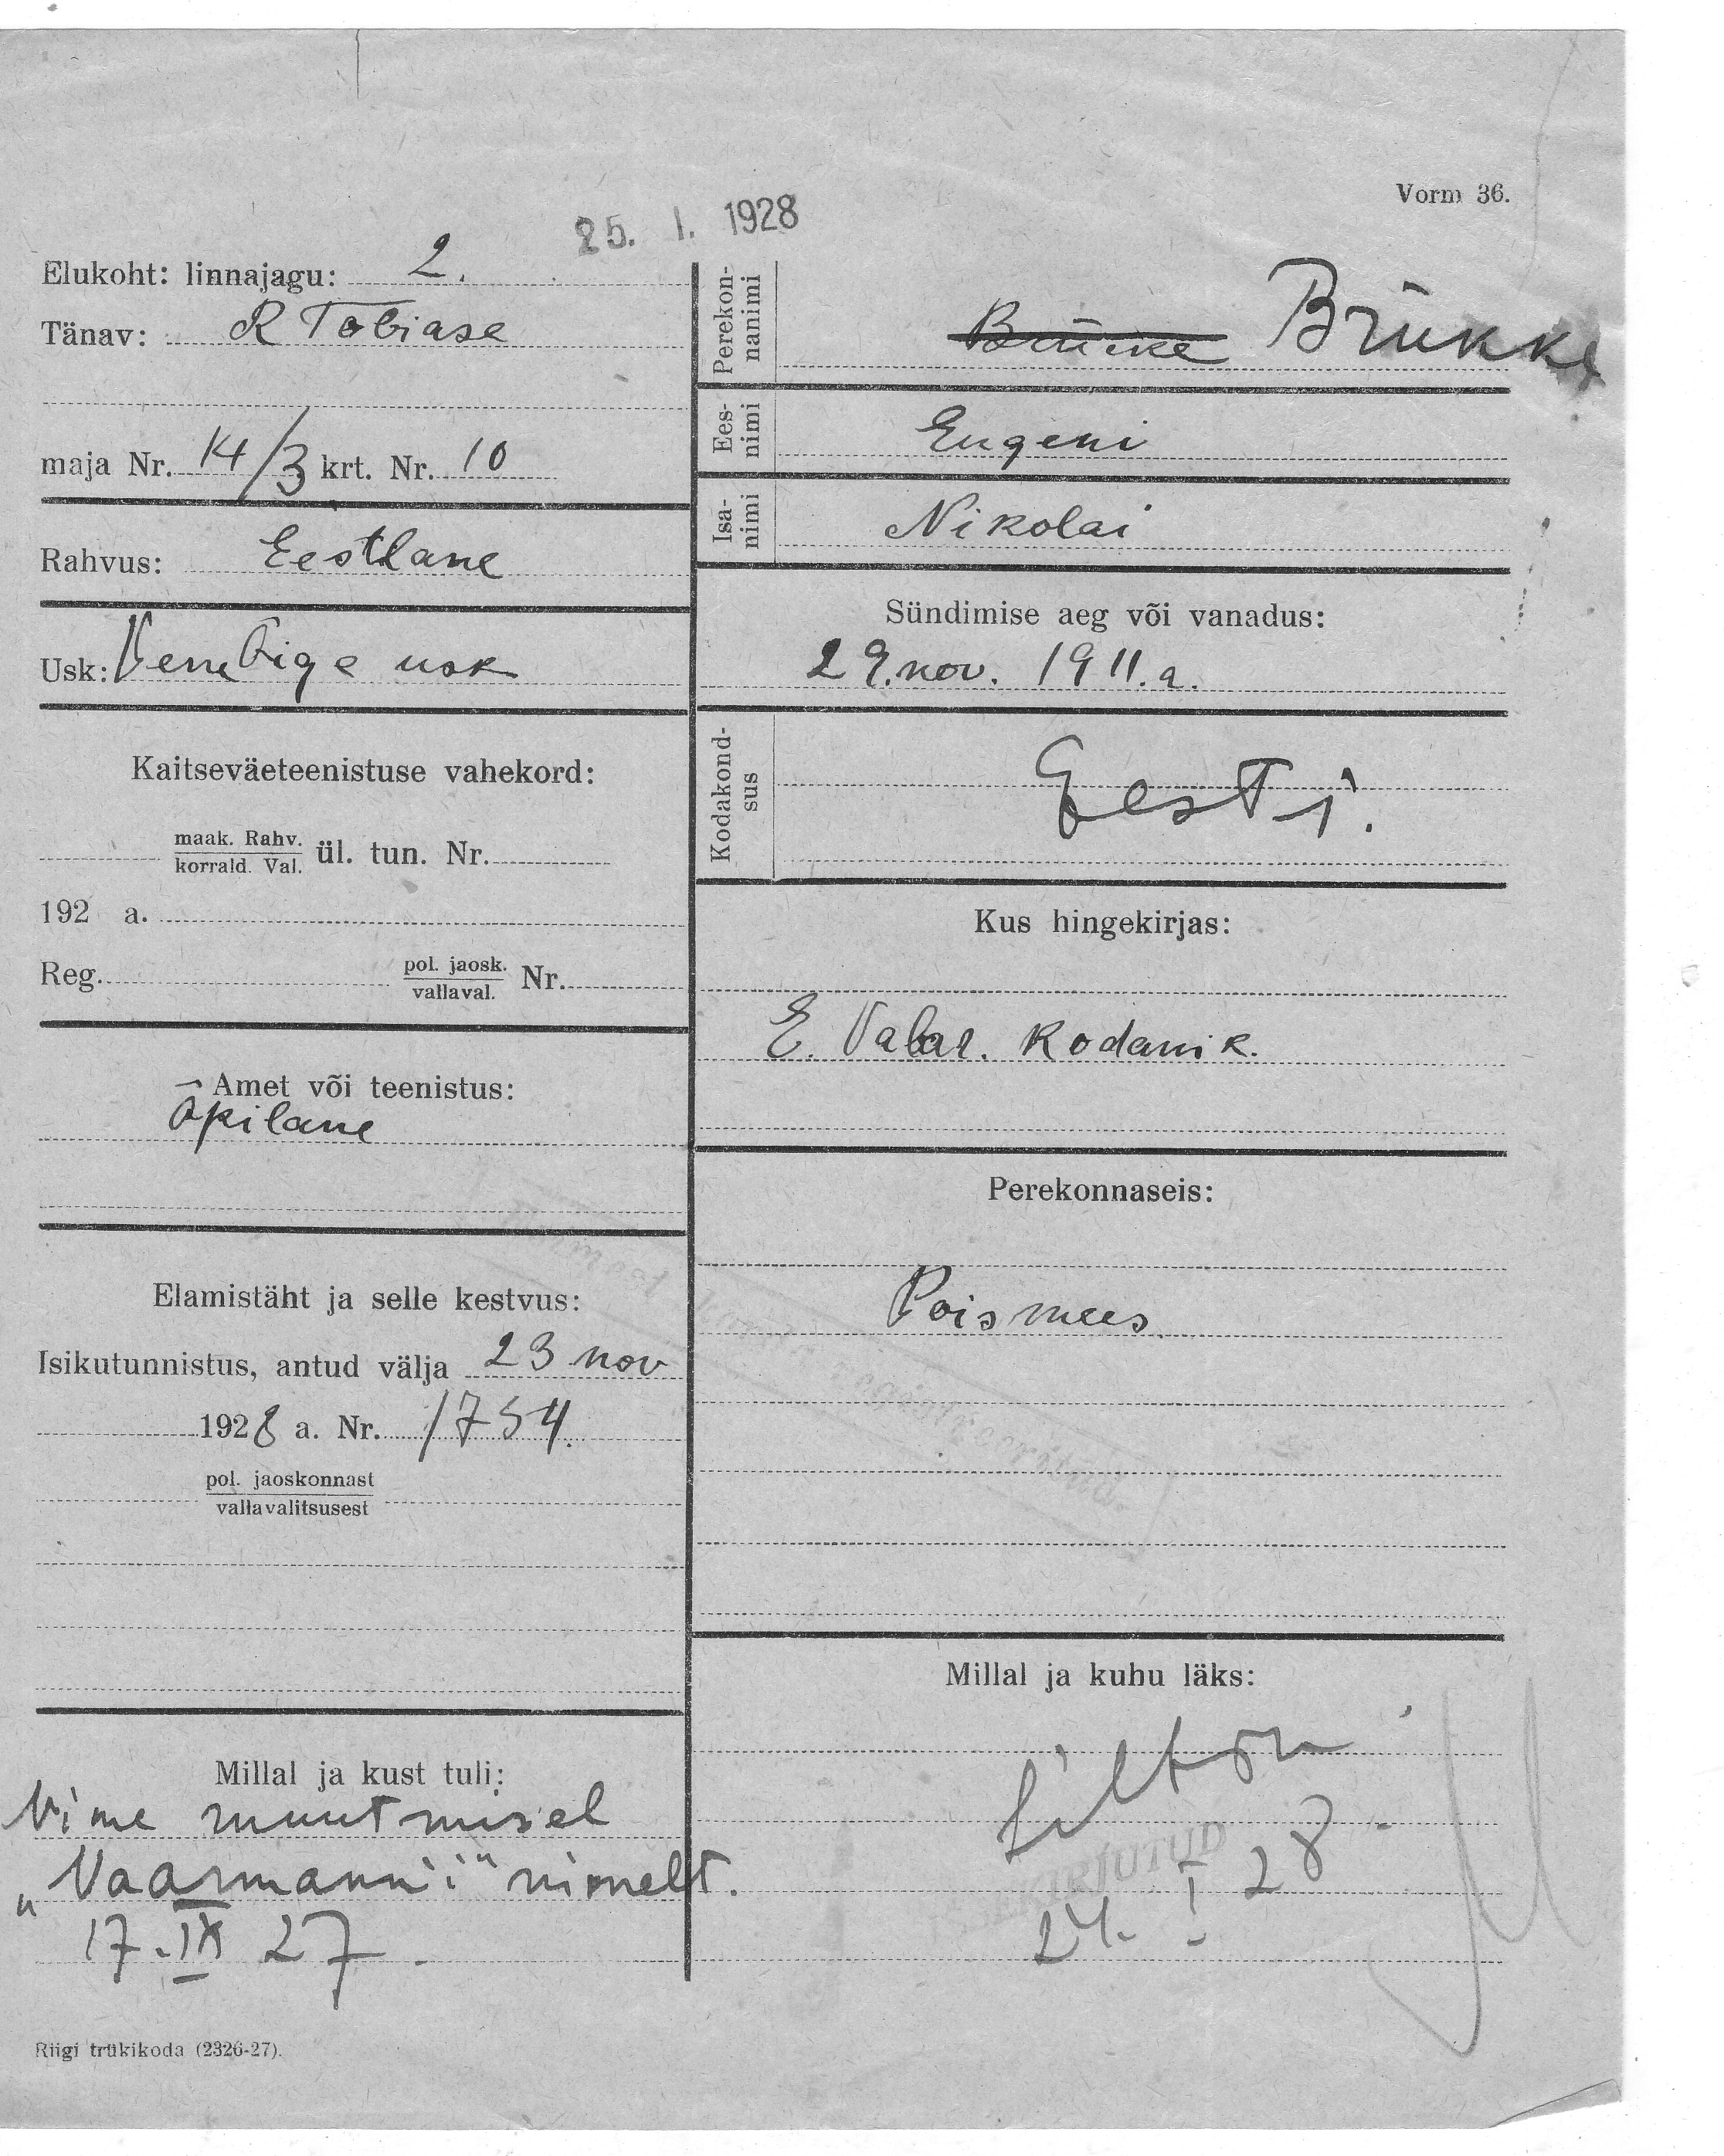 Vorm 36.
25. 1. 1928
Elukoht: linnajagu: 2.
Tänav: R Tobiase
maja Nr. 14/3 krt. Nr. 10
Rahvus: Eestlane
Usk: Vene õige usk
Kaitseväeteenistuse vahekord:
maak. Rahv.
korrald. Val. ül. tun. Nr.
192 a.
Reg. pol. jaosk.
vallaval. Nr.
Amet või teenistus:
Õpilane
Elamistäht ja selle kestvus:
Isikutunnistus, antud välja 23 nov
1928 a. Nr. 1754.
pol. jaoskonnast
vallavalitsusest
Millal ja kust tuli:
Nime muutmisel
„Vaarmann'i" nimelt.
17. IX 27
Riigi trükikoda (2326-27).
Perekon-
nanimi
Brücke Brükke
Ees-
nimi
Eugeni
Isa-
nimi
Nikolai
Sündimise aeg või vanadus:
29. nov. 1911. a.
Kodakond-
sus
Eesti.
Kus hingekirjas:
E. Vabar. Kodanik.
Perekonnaseis:
Poismees
Millal ja kuhu läks:
KIRJUTUD
24. I 28